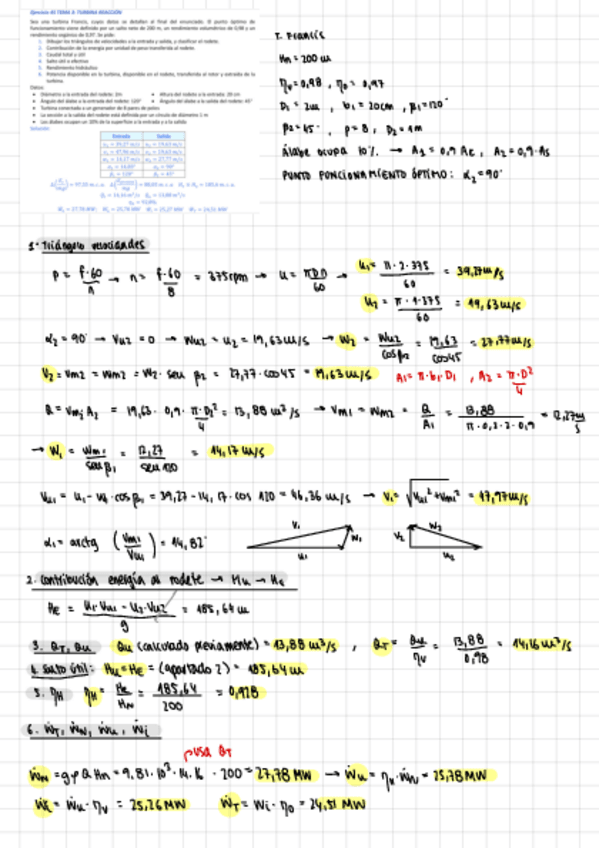 Ejercicio 45 TEMA 3: TURBINA REACCIÓN
Sea una turbina Francis, cuyos datos se detallan al final del enunciado. El punto óptimo de
funcionamiento viene definido por un salto neto de 200 m, un rendimiento volumétrico de 0,98 y un
rendimiento orgánico de 0,97. Se pide:
1. Dibujar los triángulos de velocidades a la entrada y salida, y clasificar el rodete.
2. Contribución de la energía por unidad de peso transferida al rodete.
3. Caudal total y útil
4. Salto útil o efectivo
5. Rendimiento hidráulico
6. Potencia disponible en la turbina, disponible en el rodete, transferida al rotor y extraída de la
turbina.
Datos:
Diámetro a la entrada del rodete: 2m
Altura del rodete a la entrada: 20 cm
Ángulo del álabe a la entrada del rodete: 120°
Ángulo del álabe a la salida del rodete: 45°
Turbina conectada a un generador de 8 pares de polos
La sección a la salida del rodete está definida por un círculo de diámetro 1 m
Los álabes ocupan un 10% de la superficie a la entrada y a la salida
Solución:
Entrada Salida
T. Francis
Hn = 200 m
ηv = 0,98 , η0 = 0,97
D1 = 2m , b1 = 20cm , β1 = 120°
β2 = 45° , p = 8 , D2 = 1m
álabe ocupa 10% → A1 = 0,9 AE , A2 = 0,9·AS
PUNTO FUNCIONAMIENTO ÓPTIMO: α2 = 90°
1. Triángulo velocidades
p = f·60/n → n = f·60/8 = 375rpm → u = πDn/60 → u1 = π·2·375/60 = 39,27m/s
u2 = π·1·375/60 = 19,63m/s
α2 = 90° → Vu2 = 0 → Wu2 = u2 = 19,63m/s → W2 = Wu2/cosβ2 = 19,63/cos45 = 27,77m/s
V2 = Vm2 = Wm2 = W2 · sen β2 = 27,77·cos45 = 19,63m/s A1 = π·b1·D1 , A2 = π·D²/4
Q = Vm2 A2 = 19,63·0,9·π·D2²/4 = 13,88 m³/s → Vm1 = Wm2 = Q/A1 = 13,88/π·0,2·2·0,9 = 12,27m/s
→ W1 = Wm1/senβ1 = 12,27/sen120 = 14,17m/s
Vu1 = u1 - W1·cosβ1 = 39,27 - 14,17·cos 120 = 46,36 m/s → V1 = √Vu1² + Vm1² = 47,97m/s
α1 = arctg (Vm1/Vu1) = 14,82°
V1 W1 u1 V2 W2 u2
2. Contribución energía al rodete → Hu → HE
HE = u1·Vu1 - u2·Vu2/g = 185,64m
3. QT, Qu Qu (calculado previamente) = 13,88 m³/s , QT = Qu/ηv = 13,88/0,98 = 14,16m³/s
4. Salto útil: Hu = HE = (apartado 2) = 185,64m
5. ηH ηH = HE/Hn = 185,64/200 = 0,928
6. ẆT, ẆN, Ẇu, Ẇi
pusa QT
ẆN = gρQHn = 9,81·10³·14,16 · 200 = 27,78 MW → Ẇu = ηH·ẆN = 25,78MW
Ẇi = Ẇu·ηv = 25,26MW ẆT = Ẇi·η0 = 24,51 MW